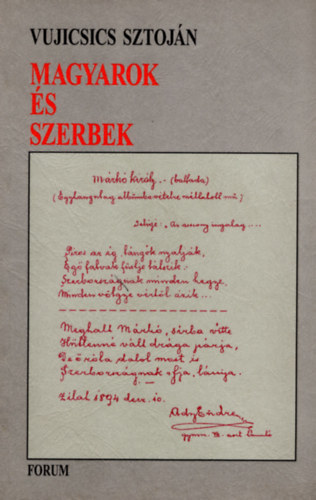 VUJICSICS SZTOJÁN
MAGYAROK
ÉS
SZERBEK
Márkó király. (ballada)
Jelige: „Az asszony ingatag....
Piros az ég, lángok nyalják,
Égő falvak füstje látszik.
Szerbországnak minden hegye,
Minden völgye vértől ázik...
Meghalt Márkó, sírba vitte
Hűtlenné vált drága párja,
De őróla dalol most is
Szerbországnak ifja, lánya.
Zilah 1894 dec. 10.
Ady Endre
FORUM